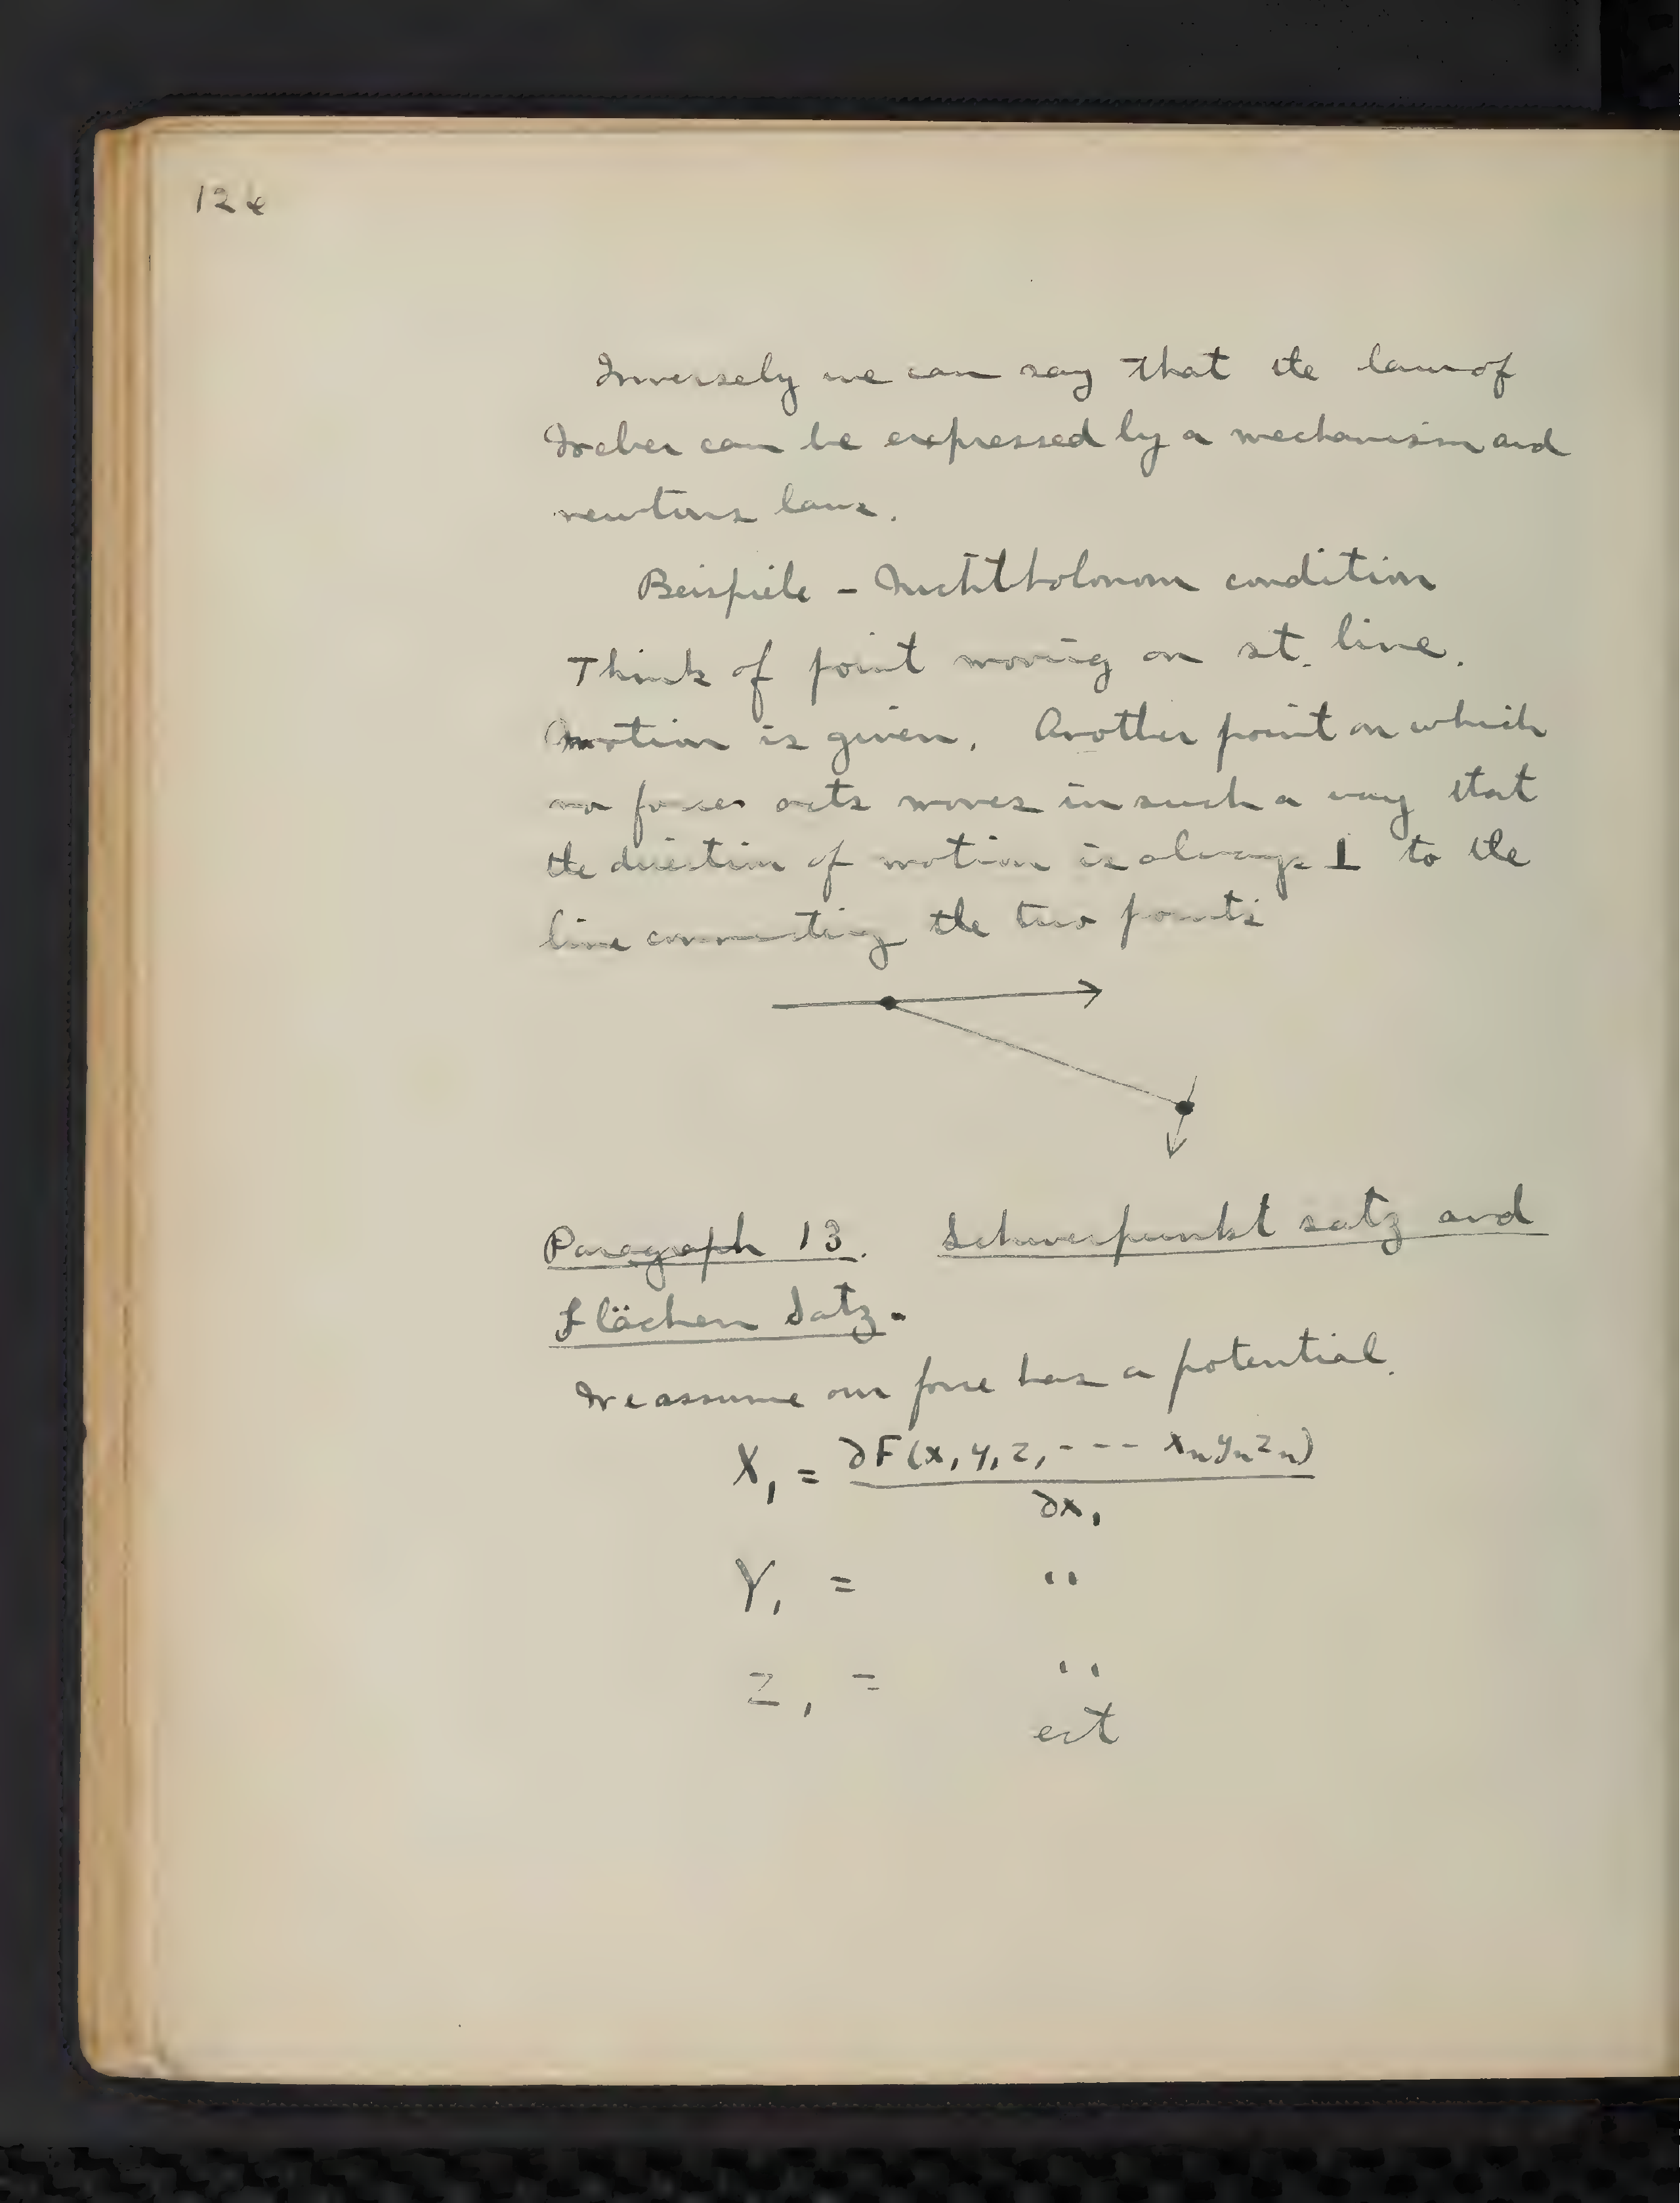 124
Inversely we can say that the law of
Weber can be expressed by a mechanism and
newtons laws.
Beispiele - Nichtholonom condition
Think of point moving on st. line.
Motion is given. Another point on which
no forces acts moves in such a way that
the direction of motion is always ⊥ to the
line connecting the two points
Paragraph 13. Schwerpunkt satz and
Flächen Satz.
We assume our force has a potential.
X₁ = ∂F(x₁ y₁ z₁ --- xₙ yₙ zₙ)
∂x₁
Y₁ = "
Z₁ = "
ect